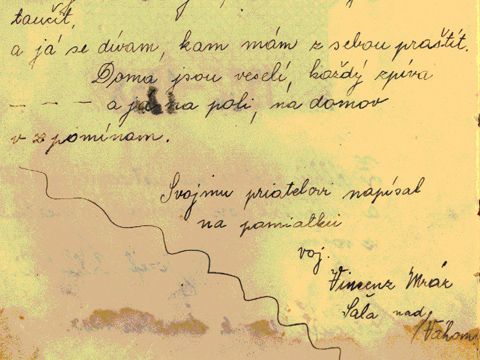 taučit,
a já se dívam, kam mám z sebou praštit.
Doma jsou veselí, každý zpíva
– – – a já na poli, na domov
v z pomínam.
Svojmu priatelovi napísal
na pamiatku
voj.
Vincenz Mráz
Sala nad
Váhom